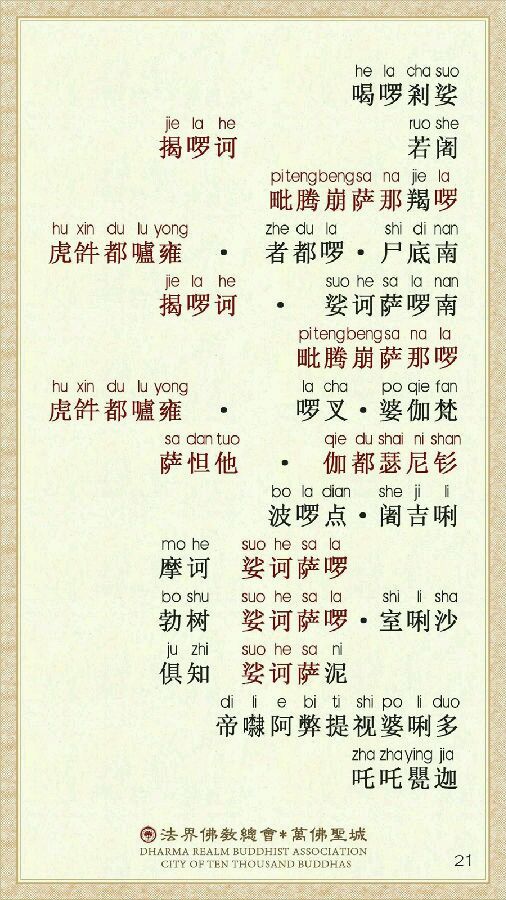 he la cha suo
喝啰刹娑
jie la he ruo she
揭啰诃 若阇
pi teng beng sa na jie la
毗腾崩萨那羯啰
hu xin du lu yong zhe du la shi di nan
虎𤙖都嚧雍 · 者都啰 · 尸底南
jie la he suo he sa la nan
揭啰诃 · 娑诃萨啰南
pi teng beng sa na la
毗腾崩萨那啰
hu xin du lu yong la cha po qie fan
虎𤙖都嚧雍 · 啰叉 · 婆伽梵
sa dan tuo qie du shai ni shan
萨怛他 · 伽都瑟尼钐
bo la dian she ji li
波啰点 · 阇吉唎
mo he suo he sa la
摩诃 娑诃萨啰
bo shu suo he sa la shi li sha
勃树 娑诃萨啰 · 室唎沙
ju zhi suo he sa ni
俱知 娑诃萨泥
di li e bi ti shi po li duo
帝㘑阿弊提视婆唎多
zha zha ying jia
吒吒甖迦
法界佛教總會 * 萬佛聖城
DHARMA REALM BUDDHIST ASSOCIATION
CITY OF TEN THOUSAND BUDDHAS
21